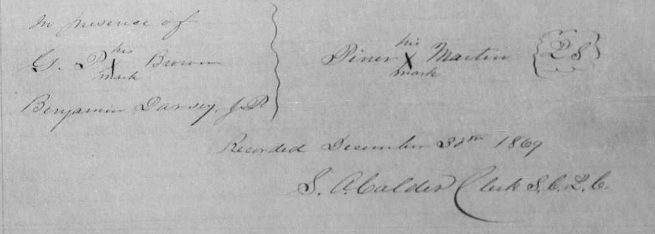 In presence of
his
G. P. X Brown
mark
Benjamin Darsey, J.P.
his
Piner X Martin {L S}
mark
Recorded December 30th 1869
S. A. Calder Clerk S. C. L. C.